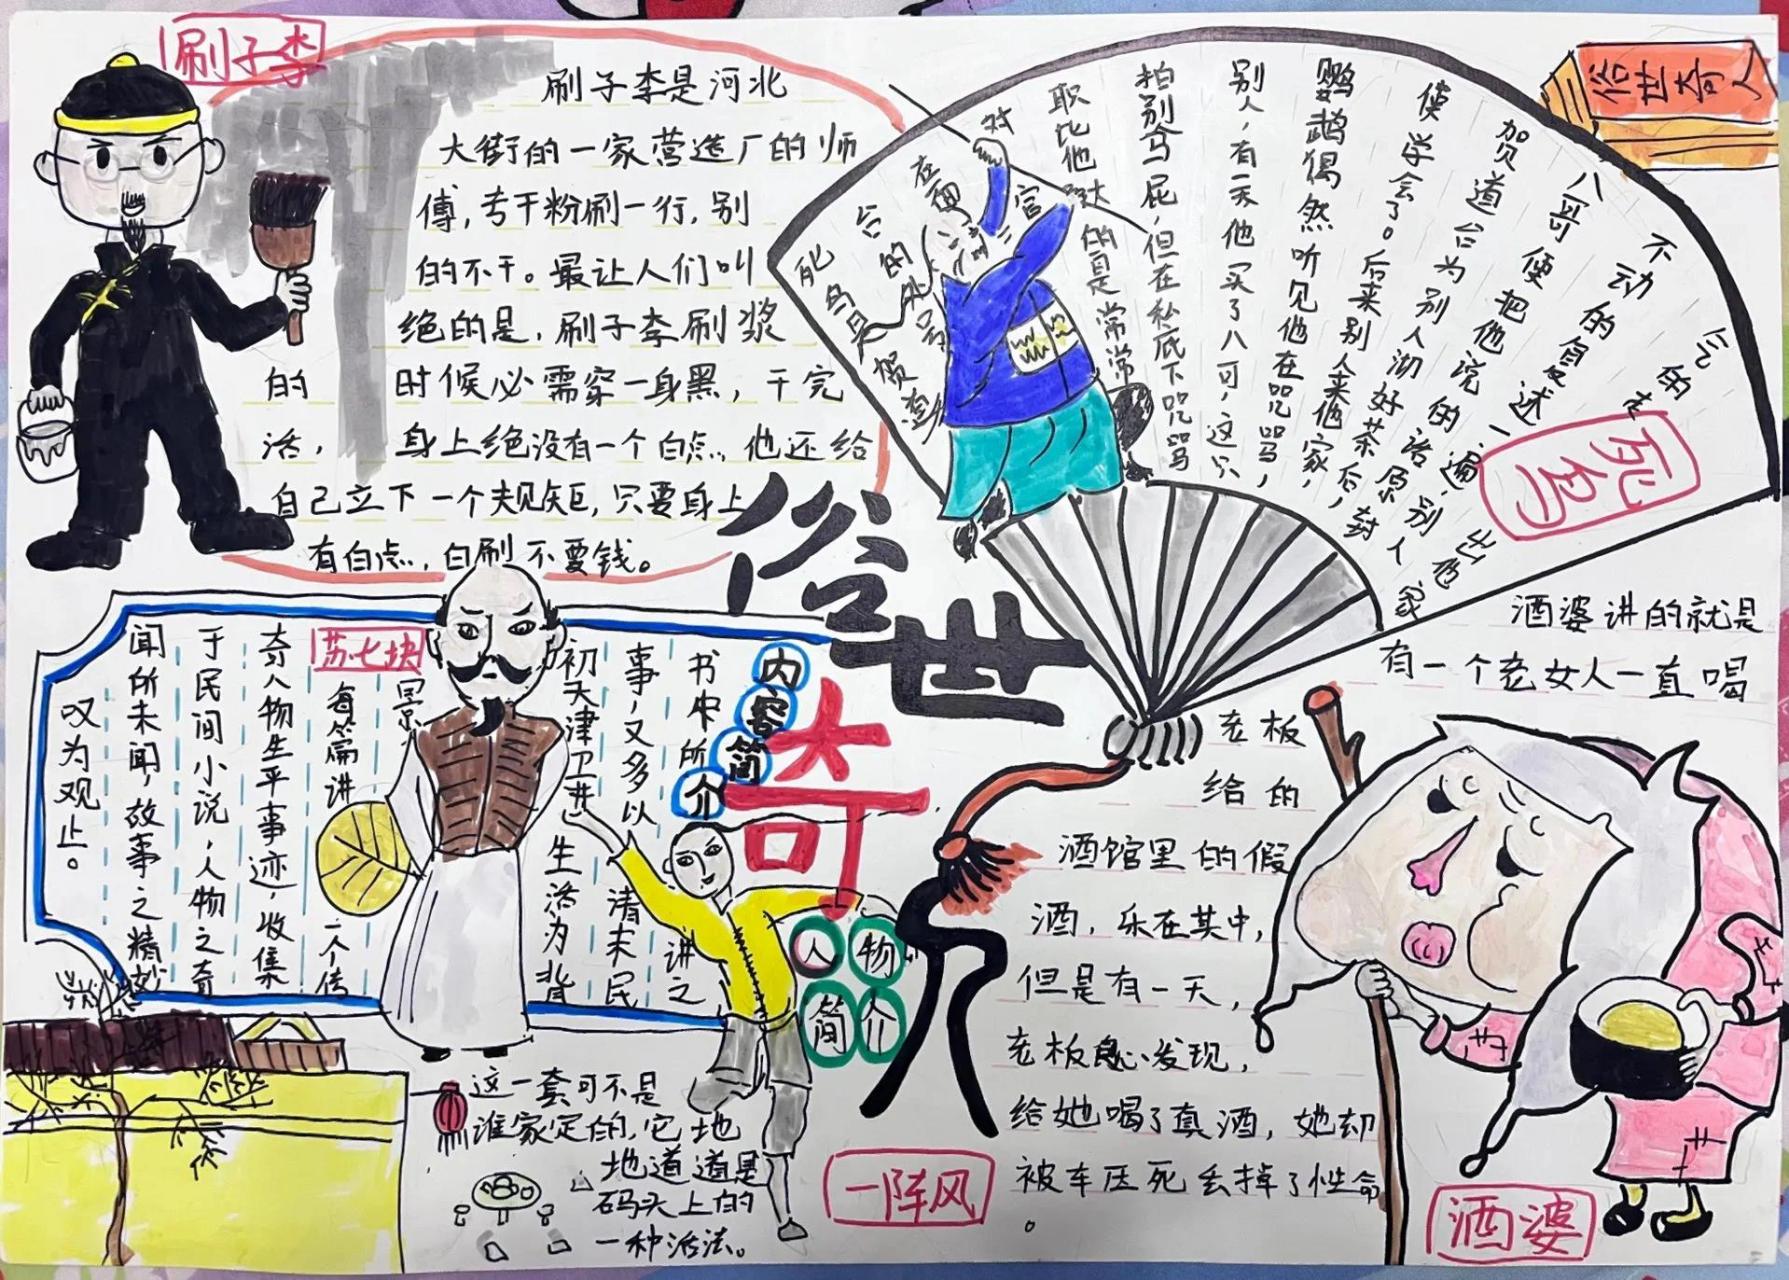 刷子李
刷子李是河北
大街的一家营造厂的师
傅，专干粉刷一行，别
的不干。最让人们叫
绝的是，刷子李刷浆
的时候必需穿一身黑，干完
活，身上绝没有一个白点，他还给
自己立下一个规矩，只要身上
有白点，白刷不要钱。
俗世奇人
俗世奇人
死鸟
死鸟是贺道
台的外号
在面对官
职比他
的是常常
拍别人马屁，但在私底下咒骂
别人，有一天他买了八可，这只
鹦鹉偶然听见他在咒骂，
使学会了。后来别人来他家，
贺道台为别人沏好茶后，
八哥便把他说的话原封
不动的复述一遍，别人
气的走出
内容简介
书中所讲之
事，又多以清末民
初天津卫共生活为背
景，每篇讲一个传
奇人物生平事迹，收集
于民间小说，人物之奇
闻所未闻，故事之精妙
叹为观止。
苏七块
人物简介
这一套可不是
谁家定的，它地
地道道是
码头上的
一种活法。
一阵风
酒婆讲的就是
有一个老女人一直喝
老板
给的
酒馆里的假
酒，乐在其中，
但是有一天，
老板良心发现，
给她喝了真酒，她却
被车压死丢掉了性命
。
酒婆